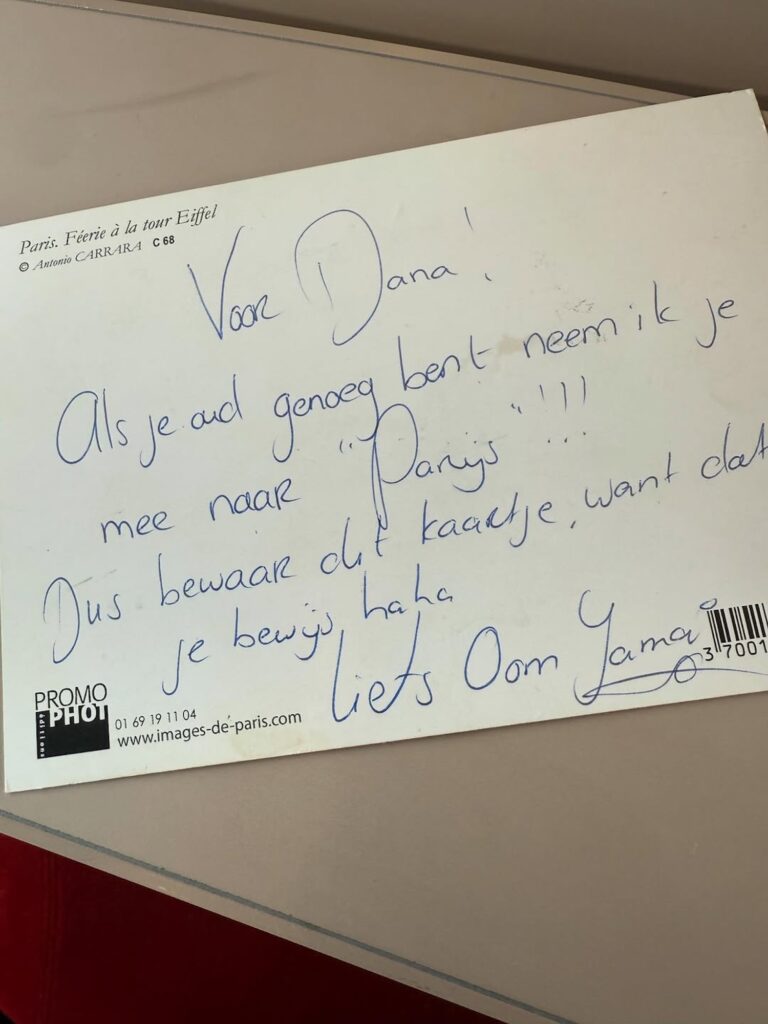 Paris. Féerie à la tour Eiffel
© Antonio CARRARA C 68
Voor Dana!
Als je oud genoeg bent neem ik je
mee naar "Parijs"!!!
Dus bewaar dit kaartje, want dat
je bewijs haha
liefs Oom Yama
3 7001
PROMO
PHOT
01 69 19 11 04
www.images-de-paris.com